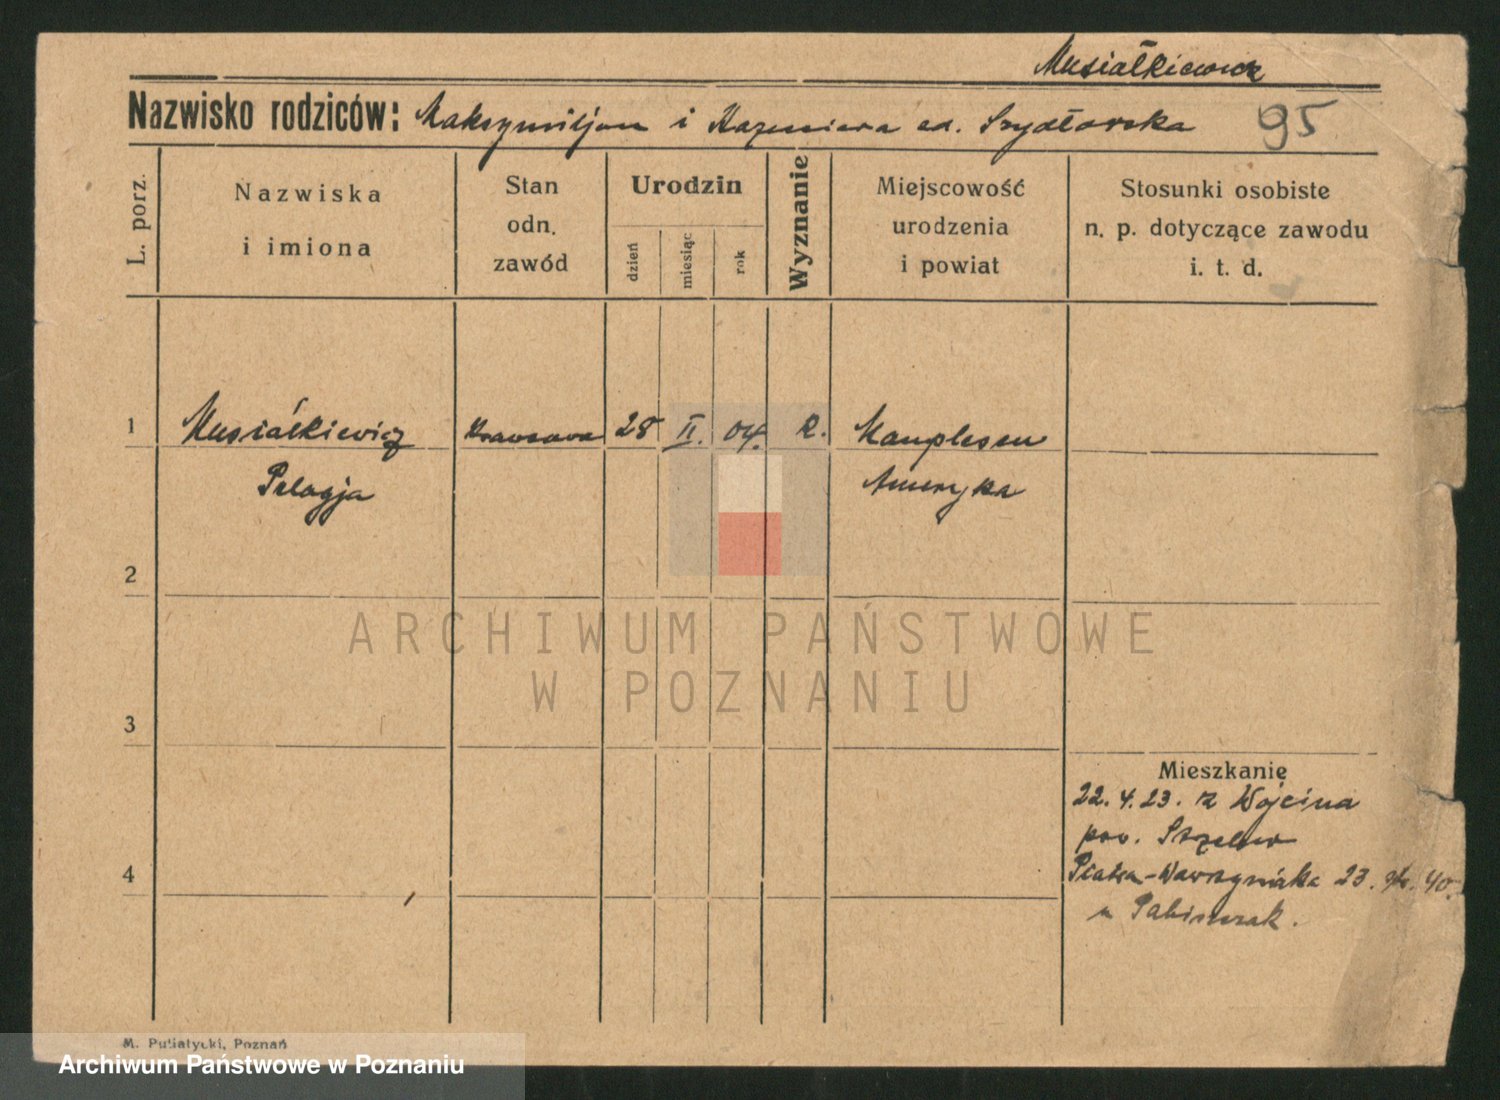 Musiałkiewicz
Nazwisko rodziców: Maksymiljan i Kazimiera Szydłowska
95
L. porz.
Nazwiska
i imiona
Stan
odn.
zawód
Urodzin
dzień
miesiąc
rok
Wyznanie
Miejscowość
urodzenia
i powiat
Stosunki osobiste
n. p. dotyczące zawodu
i. t. d.
1 Musiałkiewicz Krawcowa 28 II. 04. R.
Pelagja Ameryka
2
3
4
Mieszkanie
22. 4. 23. z Wójcina
pow. Strzelno
23. 40
u
ARCHIWUM PAŃSTWOWE
W POZNANIU
M. Putiatycki, Poznań
Archiwum Państwowe w Poznaniu